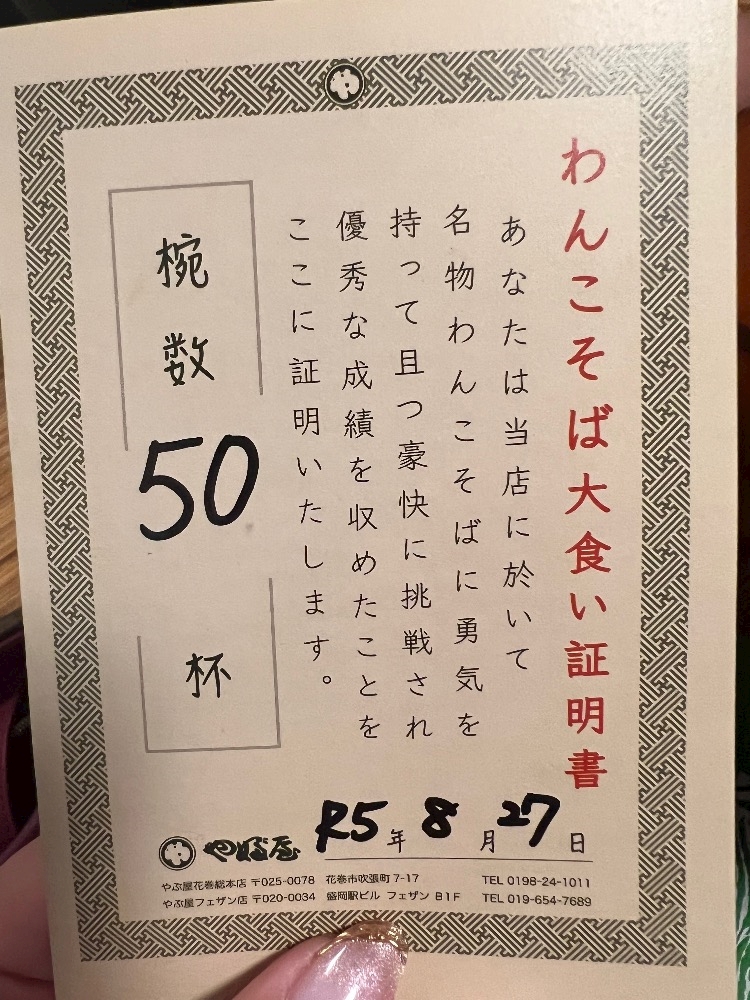 わんこそば大食い証明書
あなたは当店に於いて
名物わんこそばに勇気を
持って且つ豪快に挑戦され
優秀な成績を収めたことを
ここに証明いたします。
椀数
50
杯
R5年8月27日
やぶ屋
やぶ屋花巻総本店 〒025-0078 花巻市吹張町7-17 TEL 0198-24-1011
やぶ屋フェザン店 〒020-0034 盛岡駅ビル フェザン B1F TEL 019-654-7689